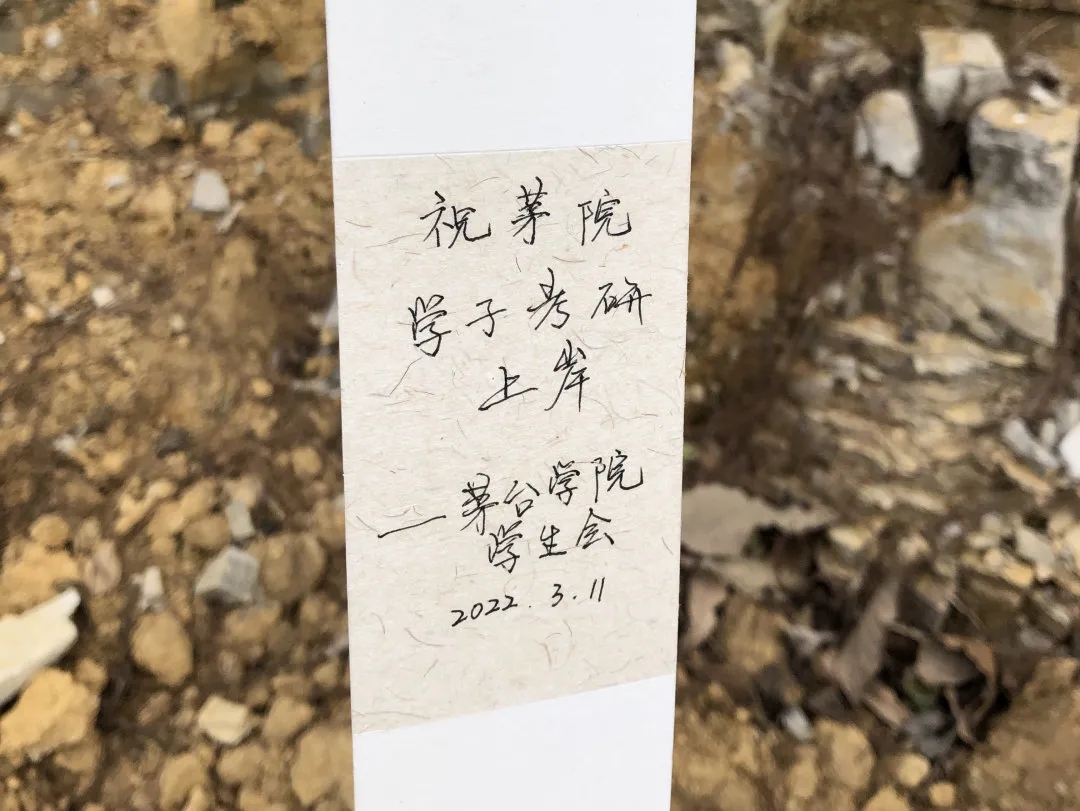 祝茅院
学子考研
上岸
——茅台学院
学生会
2022.3.11